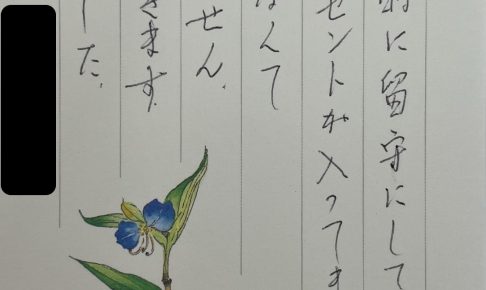 に留守にして
セントが入ってま
なんて
せん.
きます.
した.